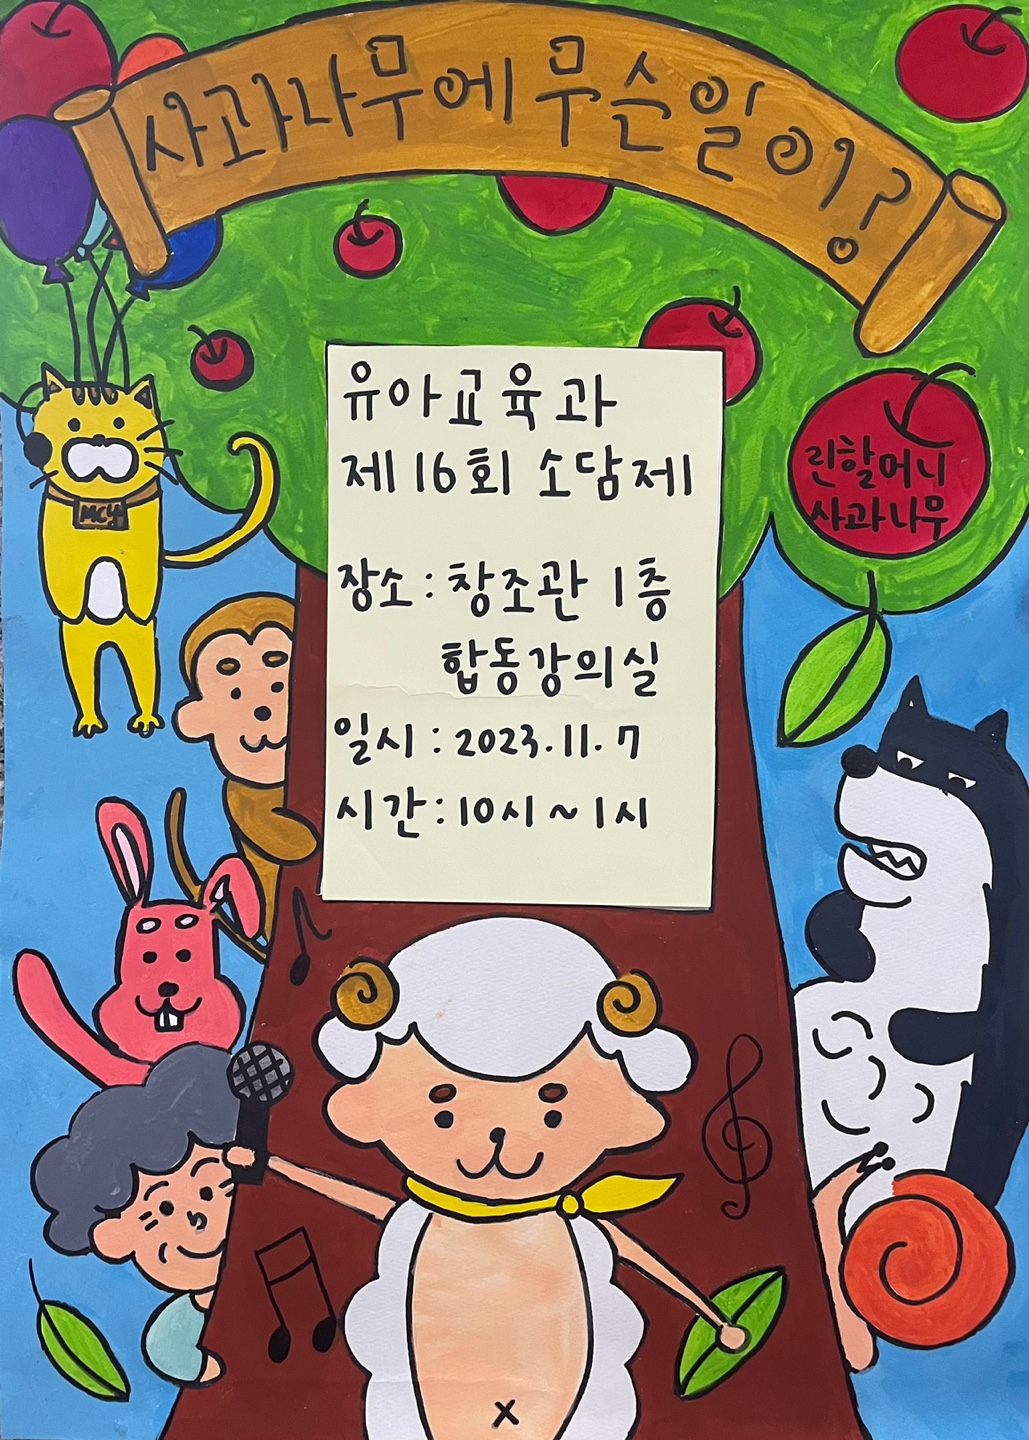 사과나무에 무슨일이?
유아교육과
제16회 소담제
장소 : 창조관 1층
합동강의실
일시 : 2023. 11. 7
시간 : 10시 ~ 1시
린할머니
사과나무
MC냥